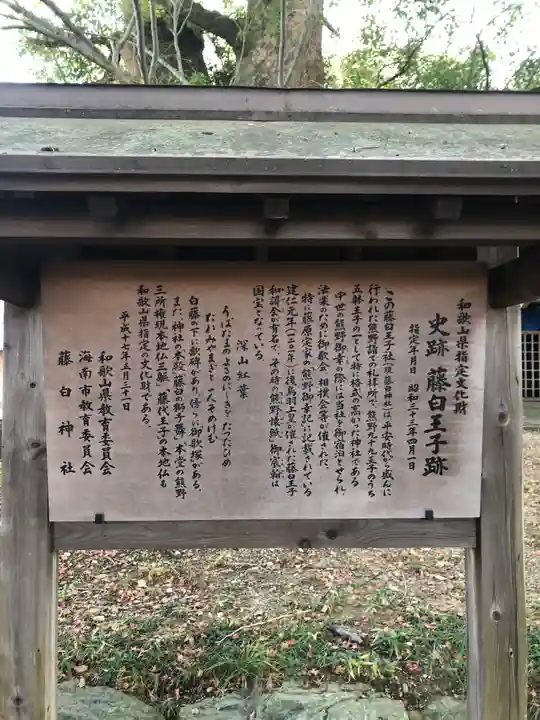 和歌山県指定文化財
史跡 藤白王子跡
指定年月日 昭和三十三年四月一日
この藤白王子社(現藤白神社)は平安時代から盛んに
行われた熊野詣での礼拝所で、熊野九十九王子のうち
五躰王子の一として特に格式の高かった神社である
中世の熊野御幸の際には当社を御宿泊とせられ、
法楽のために御歌会、相撲会等が催された。
特に藤原定家の「熊野御幸記」に記載されている
建仁元年(一二〇一年)に後鳥羽上皇が催された藤白王子
和謌会が有名で、その時の熊野懐紙(御宸翰)は
国宝となっている
深山紅葉
うばたまの
たれみやまぎと一人そのけむ
白藤の下に歌碑があり、傍らに御歌塚がある。
また、神社の本殿、「藤白の獅子舞」、本堂の熊野
三所権現本地仏三躯、藤代王子の本地仏も
和歌山県指定の文化財である。
平成十七年五月三十一日
和歌山県教育委員会
海南市教育委員会
藤白神社